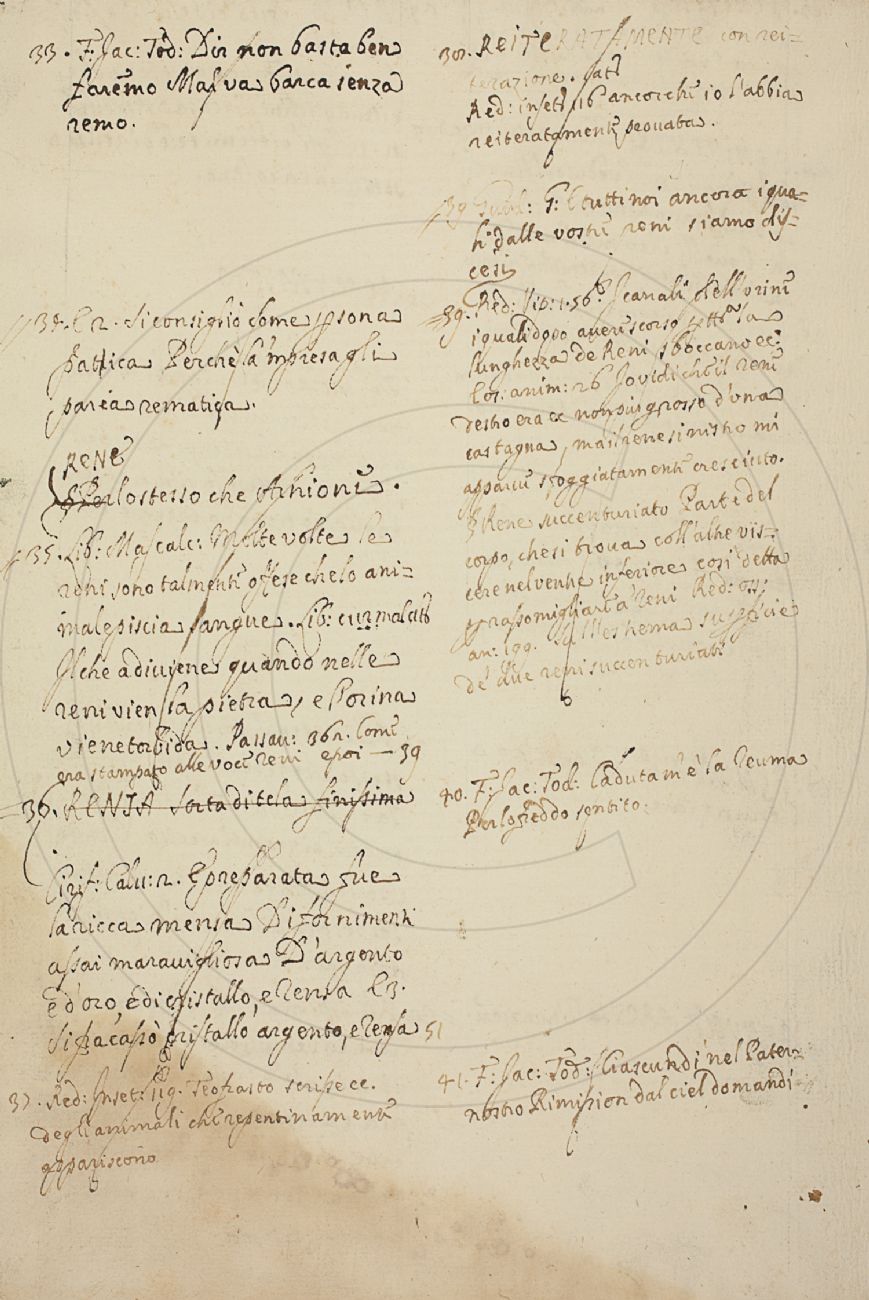 33. F: Jac: Tod: Dir non basta ben
faremo Mal va barca senza
remo.
34. C 2. Si consigliò come persona
pattica Perchè la 'mpresa gli
parea rematica.
RENE
Per lo stesso che Arnione.
35. Lib: Mascalc: Molte volte le
reni sono talmente offese che lo ani=
male piscia sangue. Lib: cur malatt
Il che adiviene quando nelle
reni vien la pietra, e l'orina
viene torbida. Passau: 362. Come
era stampato alle voce reni e poi — 39
36. RENSA Sorta di tela finissima
Cirif: Calu: 2. E preparata fue
la ricca mensa Di fornimenti
assai maravigliosa D'argento
e d'oro, e di cristallo, e rensa C 3.
Si fracassò cristallo argento, e rensa 51
37. Red: Inset: 119. Teofrasto scrisse ec.
degli animali che repentinamente
appariscono
38. REITERATAMENTE con rei=
terazione. Lat:
Red: inset: 116 ancorchè io l'abbia
reiteratamente provata.
39 G: E tutti noi ancora igua=
li dalle vostre reni siamo dis=
cesi
39. Red: lib: 1. 56. I canali dell'urine
i quali dopo aver scorso per tutta la
lunghezza de Reni sboccano ec:
Oss: anim: 26 Io vidi che il rene
destro era ec non più grosso d'una
castagna, ma il rene sinistro mi
apparve sfoggiatamente cresciuto.
§ Rene succenturiato Parte del
corpo, che si trova coll'altre vis=
cere nel ventre inferiore così detta
per rassomigliare a' Reni Red: oss:
an: 199. Sull'estrema superficie
de' due reni succenturiati
40. F: Jac: Tod: Caduta m'è la reuma
Per lo freddo sentito.
41. F: Jac: Tod: Ciascun dì nel Pater=
nostro Rimission dal ciel domandi